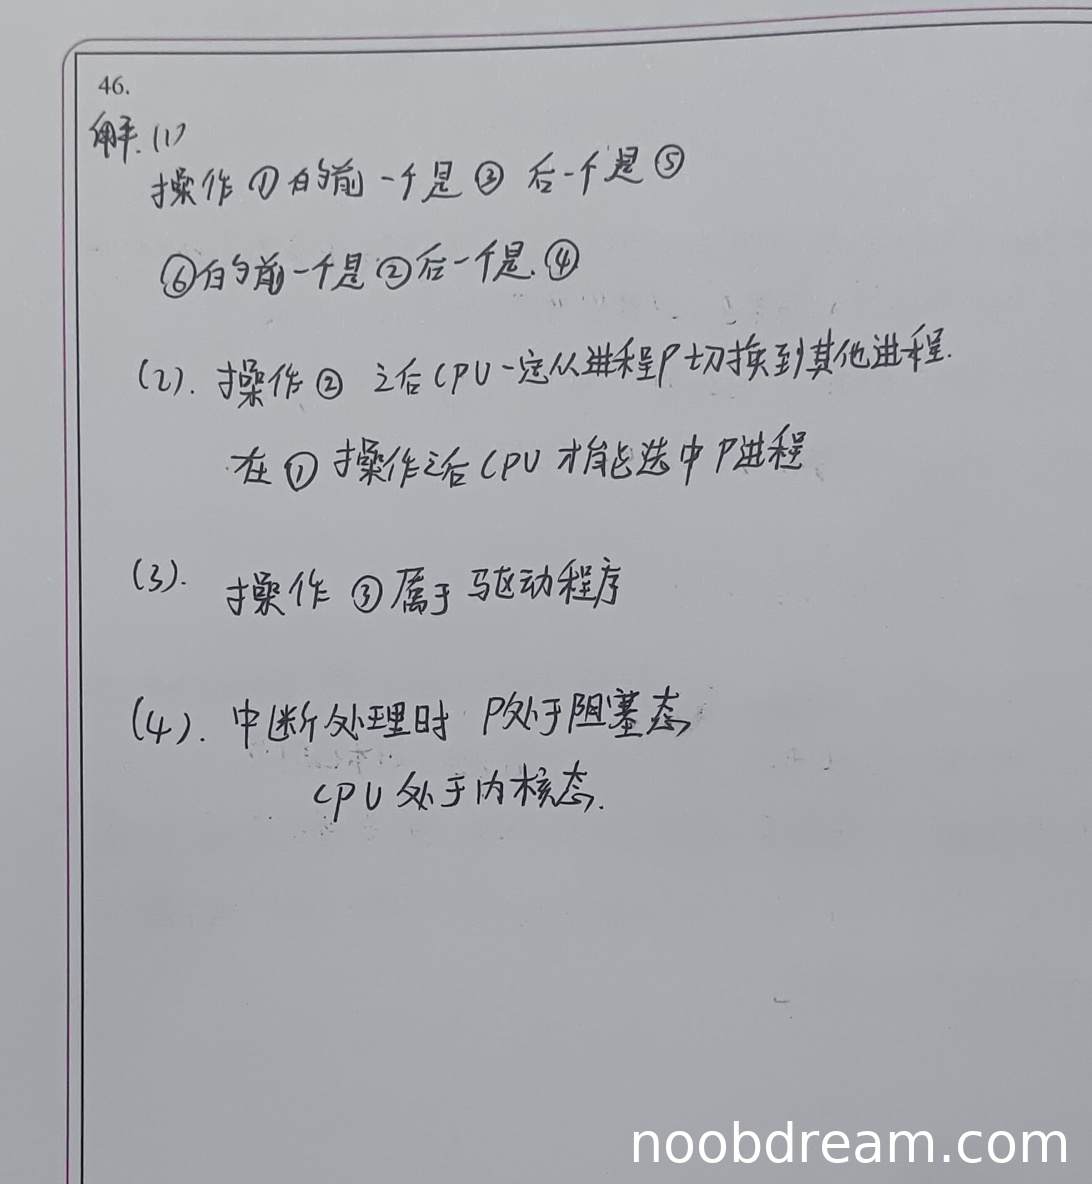 46.
解.(1)
操作①的前一个是③ 后一个是⑤
⑥的前一个是②后一个是.④
(2). 操作② 之后CPU一定从进程P切换到其他进程.
在①操作之后CPU才能选中P进程
(3). 操作③属于驱动程序
(4). 中断处理时 P处于阻塞态
CPU处于内核态.
noobdream.com